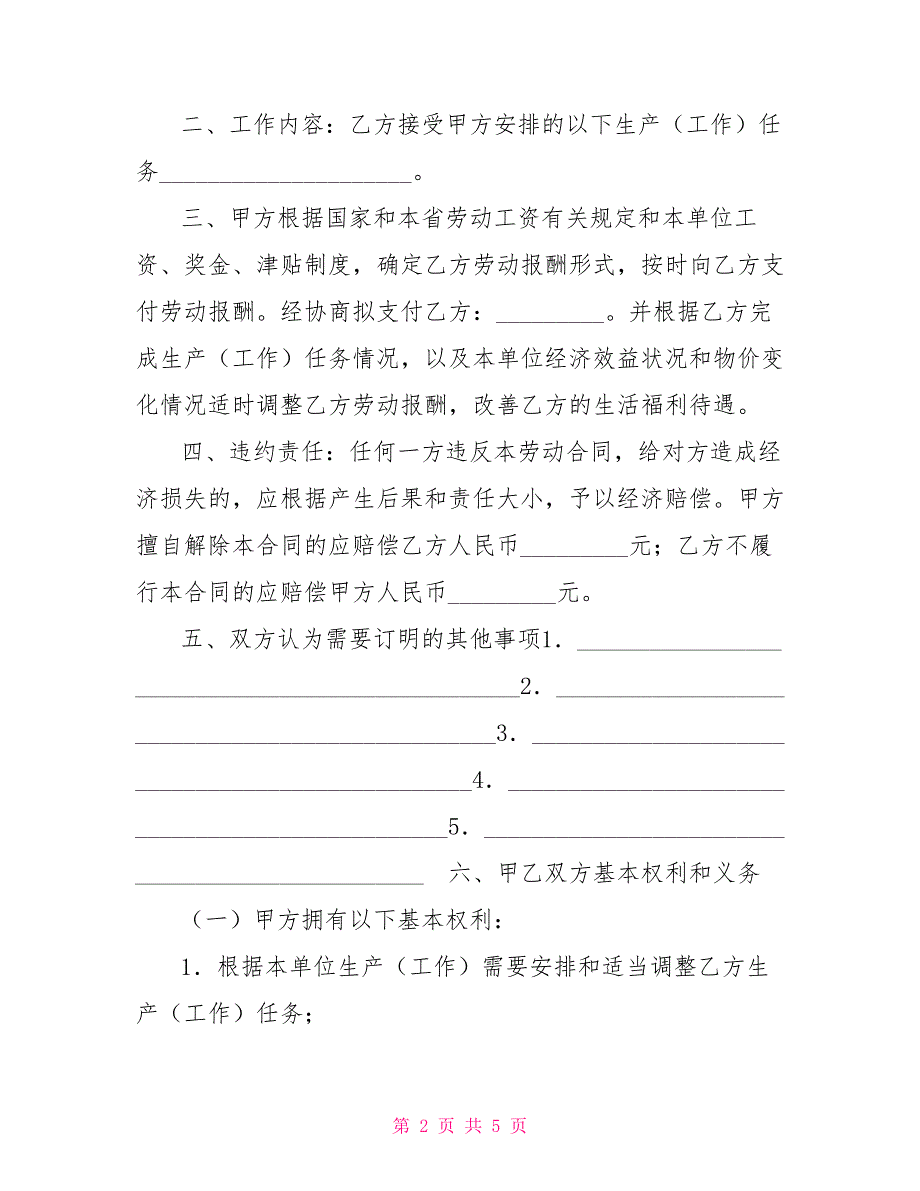 二、工作内容：乙方接受甲方安排的以下生产（工作）任
务_____________________。
三、甲方根据国家和本省劳动工资有关规定和本单位工
资、奖金、津贴制度，确定乙方劳动报酬形式，按时向乙方支
付劳动报酬。经协商拟支付乙方：_________。并根据乙方完
成生产（工作）任务情况，以及本单位经济效益状况和物价变
化情况适时调整乙方劳动报酬，改善乙方的生活福利待遇。
四、违约责任：任何一方违反本劳动合同，给对方造成经
济损失的，应根据产生后果和责任大小，予以经济赔偿。甲方
擅自解除本合同的应赔偿乙方人民币_________元；乙方不履
行本合同的应赔偿甲方人民币_________元。
五、双方认为需要订明的其他事项1．_________________
________________________________2．___________________
______________________________3．_____________________
____________________________4．_______________________
__________________________5．_________________________
________________________　六、甲乙双方基本权利和义务
（一）甲方拥有以下基本权利：
1．根据本单位生产（工作）需要安排和适当调整乙方生
产（工作）任务；
第 2 页 共 5 页